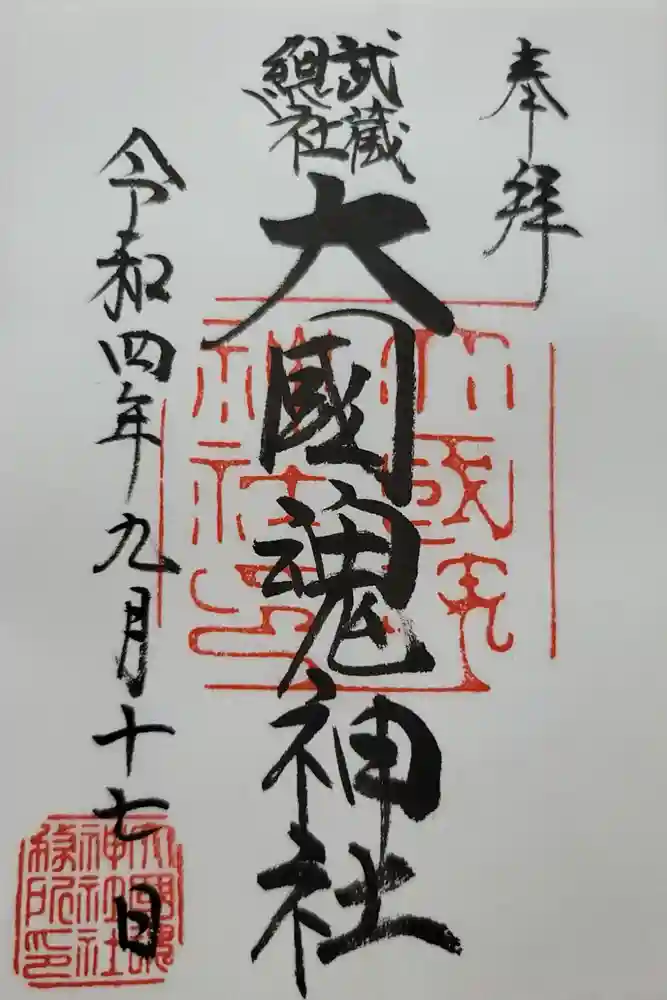 奉拝
武蔵
総社
大國魂神社
令和四年九月十七日
大國魂
神社社
務所印